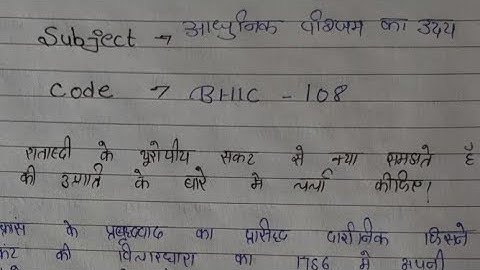 Subject → आधुनिक पश्चिम का उदय
Code → BHIC - 108
शताब्दी के यूरोपीय संकट से क्या समझते है
की उत्पत्ति के बारे मे चर्चा कीजिए।
के प्रबुद्धवाद का प्रसिद्ध दार्शनिक जिसने
की विचारधारा का 1786 मे अपनी